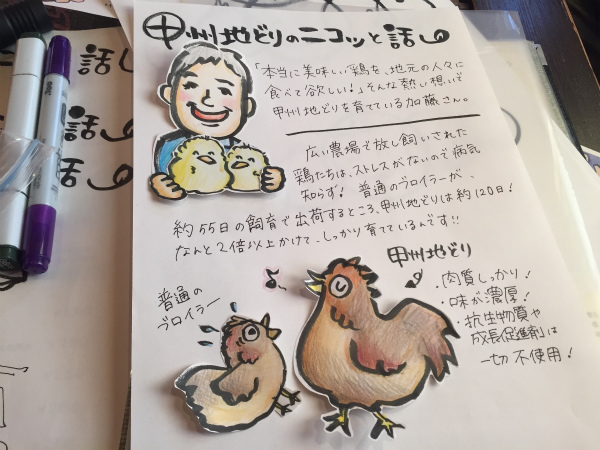 甲州地どりのニコッと話
「本当に美味しい鶏を、地元の人々に
食べて欲しい!」そんな熱い想いで
甲州地どりを育てている加藤さん。
広い農場で放し飼いされた
鶏たちは、ストレスがないので病気
知らず! 普通のブロイラーが、
約55日の飼育で出荷するところ、甲州地どりは約120日!
なんと2倍以上かけて、しっかり育てているんです!!
甲州地どり
・肉質しっかり!
・味が濃厚!
・抗生物質や
成長促進剤は
一切不使用!
普通の
ブロイラー
話
話